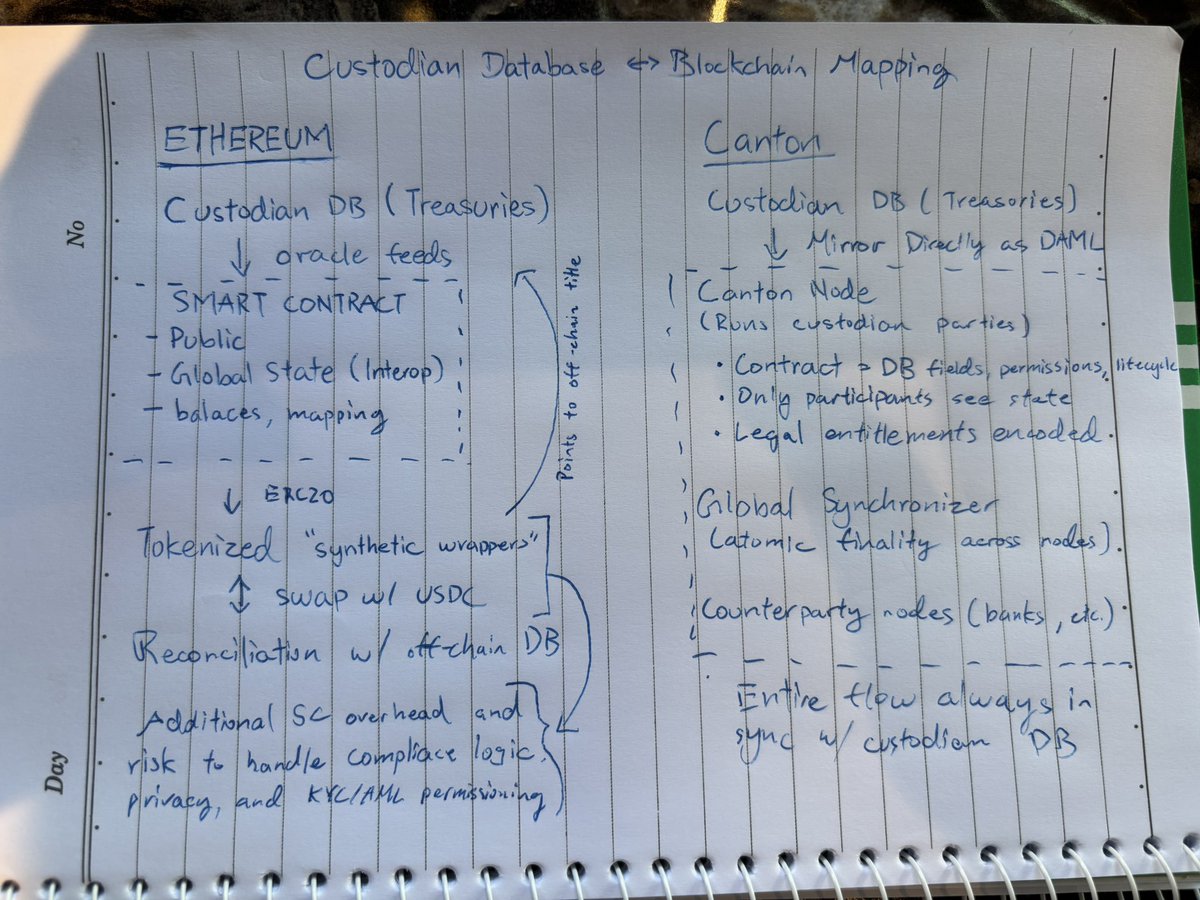 Custodian Database <-> Blockchain Mapping
ETHEREUM
Custodian DB (Treasuries)
↓ oracle feeds
SMART CONTRACT
- Public
- Global State (Interop)
- balaces, mapping
↓ ERC20
Tokenized "synthetic wrappers"
↕ swap w/ USDC
Reconciliation w/ off-chain DB
Additional SC overhead and
risk to handle compliace logic,
privacy, and KYC/AML permissioning
Points to off-chain title
Canton
Custodian DB (Treasuries)
↓ Mirror Directly as DAML
Canton Node
(Runs custodian parties)
• Contract = DB fields, permissions, lifecycle
• Only participants see state
• Legal entitlements encoded.
Global Synchronizer
(atomic finality across nodes).
Counterparty nodes (banks, etc.)
Entire flow always in
sync w/ custodian DB
No
Day